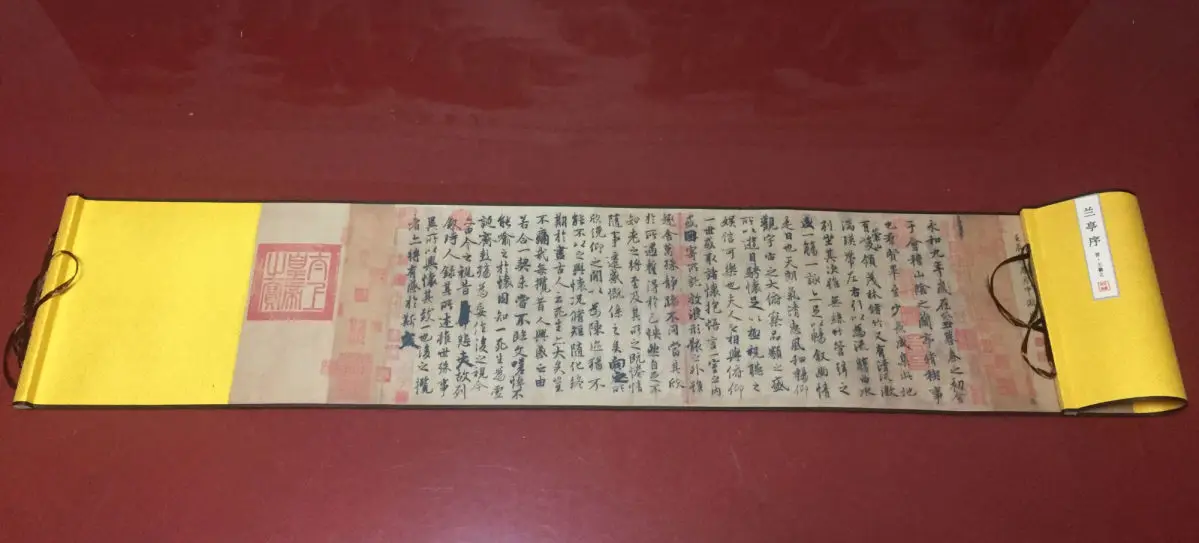 兰亭序
晋·王羲之
永和九年歲在癸丑暮春之初會
于會稽山陰之蘭亭脩稧事
也羣賢畢至少長咸集此地
有崇山峻領茂林脩竹又有清流激
湍暎帶左右引以為流觴曲水
列坐其次雖無絲竹管弦之
盛一觴一詠亦足以暢敘幽情
是日也天朗氣清惠風和暢仰
觀宇宙之大俯察品類之盛
所以遊目騁懷足以極視聽之
娛信可樂也夫人之相與俯仰
一世或取諸懷抱悟言一室之內
或因寄所託放浪形骸之外雖
趣舍萬殊靜躁不同當其欣
於所遇蹔得於己怏然自足不
知老之將至及其所之既惓情
隨事遷感慨係之矣向之所
欣俛仰之閒以為陳迹猶不
能不以之興懷況脩短隨化終
期於盡古人云死生亦大矣豈
不痛哉每攬昔人興感之由
若合一契未嘗不臨文嗟悼不
能喻之於懷固知一死生為虛
誕齊彭殤為妄作後之視今
亦由今之視昔悲夫故列
敘時人錄其所述雖世殊事
異所以興懷其致一也後之攬
者亦將有感於斯文
太上
皇帝
之寶